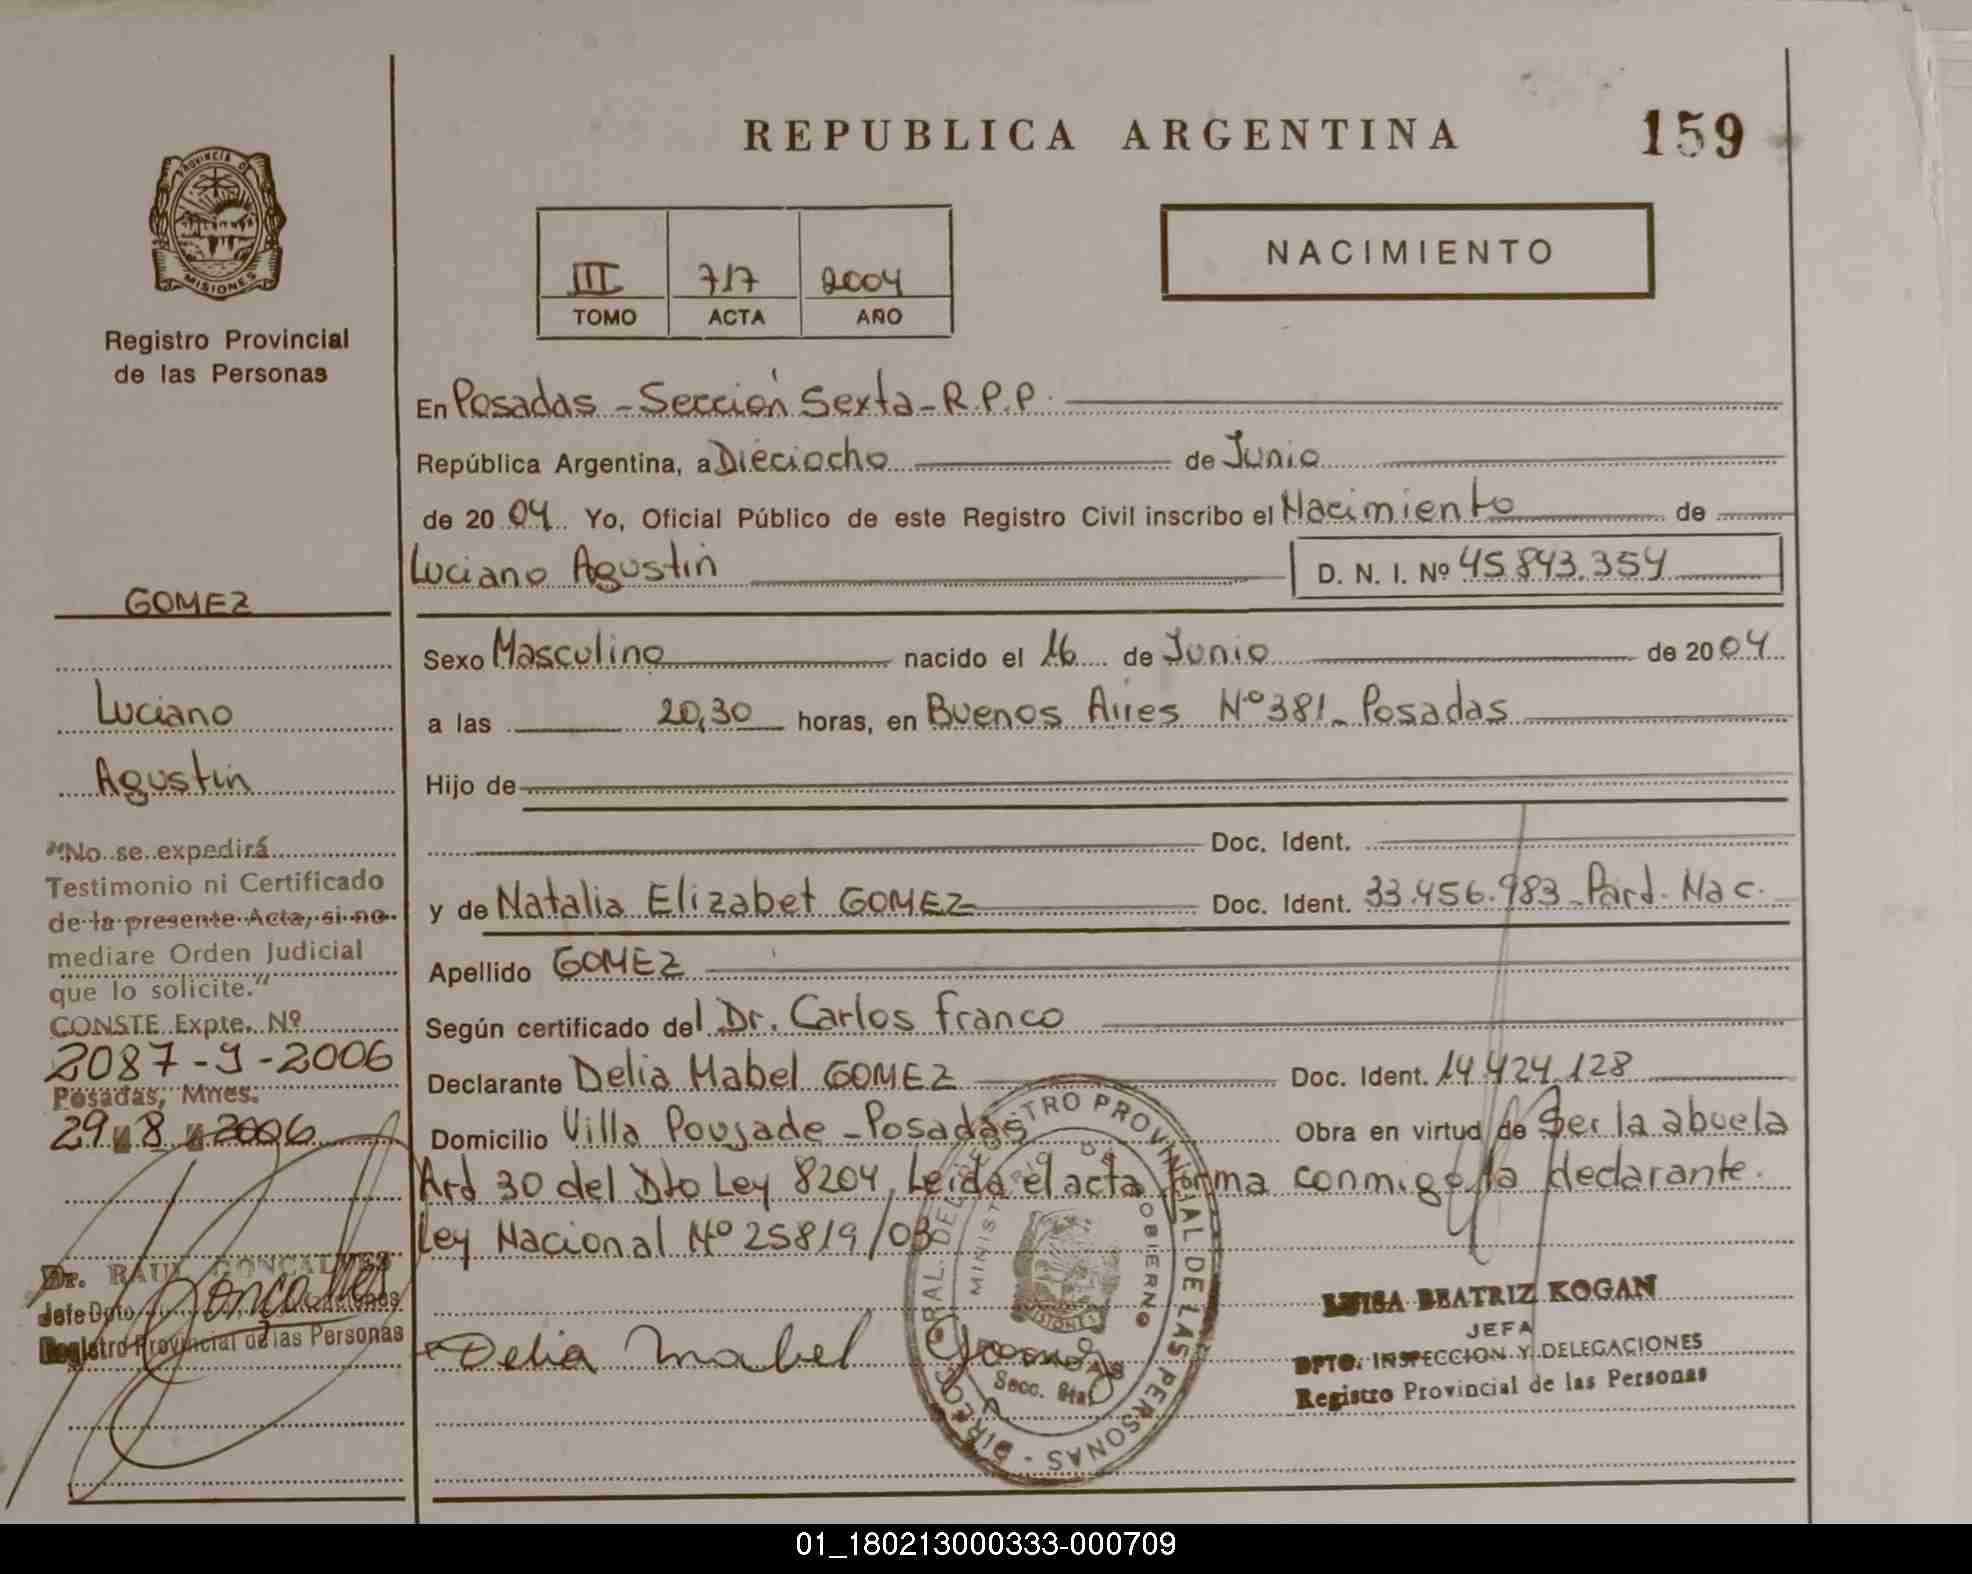 REPUBLICA ARGENTINA
159
PROVINCIA DE
MISIONES
Registro Provincial
de las Personas
III 717 2004
TOMO ACTA AÑO
NACIMIENTO
En Posadas - Sección Sexta - R.P.P.
República Argentina, a Dieciocho de Junio
de 20 04 Yo, Oficial Público de este Registro Civil inscribo el Nacimiento de
Luciano Agustin D. N. I. Nº 45.843.354
Sexo Masculino nacido el 16 de Junio de 20 04
a las 20,30 horas, en Buenos Aires Nº 381 - Posadas
Hijo de
Doc. Ident.
y de Natalia Elizabet GOMEZ Doc. Ident. 33.456.983 - Pard. Nac.
Apellido GOMEZ
Según certificado del Dr. Carlos Franco
Declarante Delia Mabel GOMEZ Doc. Ident. 14.424.128
Domicilio Villa Poujade - Posadas Obra en virtud de Ser la abuela
Art 30 del Dto Ley 8204, Leida el acta firma conmigo la declarante.
Ley Nacional Nº 25819/03
Delia Mabel Gomez
GOMEZ
Luciano
Agustin
"No se expedirá
Testimonio ni Certificado
de la presente Acta, si no
mediare Orden Judicial
que lo solicite."
CONSTE Expte. Nº
2087-J-2006
Posadas, Mnes.
29 8 2006
Dr. RAUL GONCALVES
Jefe Dpto
Registro Provincial de las Personas
REGISTRO PROVINCIAL DE LAS PERSONAS - DIREC. GRAL. DEL
MINISTERIO DE GOBIERNO
MISIONES
Secc. 6ta.
LUISA BEATRIZ KOGAN
JEFA
DPTO. INSPECCION Y DELEGACIONES
Registro Provincial de las Personas
01_180213000333-000709